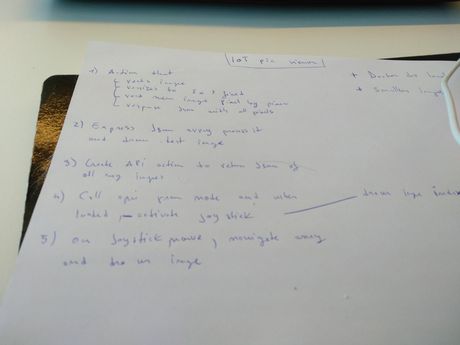 IOT pic viewer
1) Action that
resizes to 8 x 8 fixed
read new image pixel by pixel
response Json with all pixels
2) Express Json array parse it
and draw test image
3) Create API action to return Json of
all my images
4) Call api from node and when
loaded, activate joystick
draw image
5) on joystick move, navigate array
and draw image